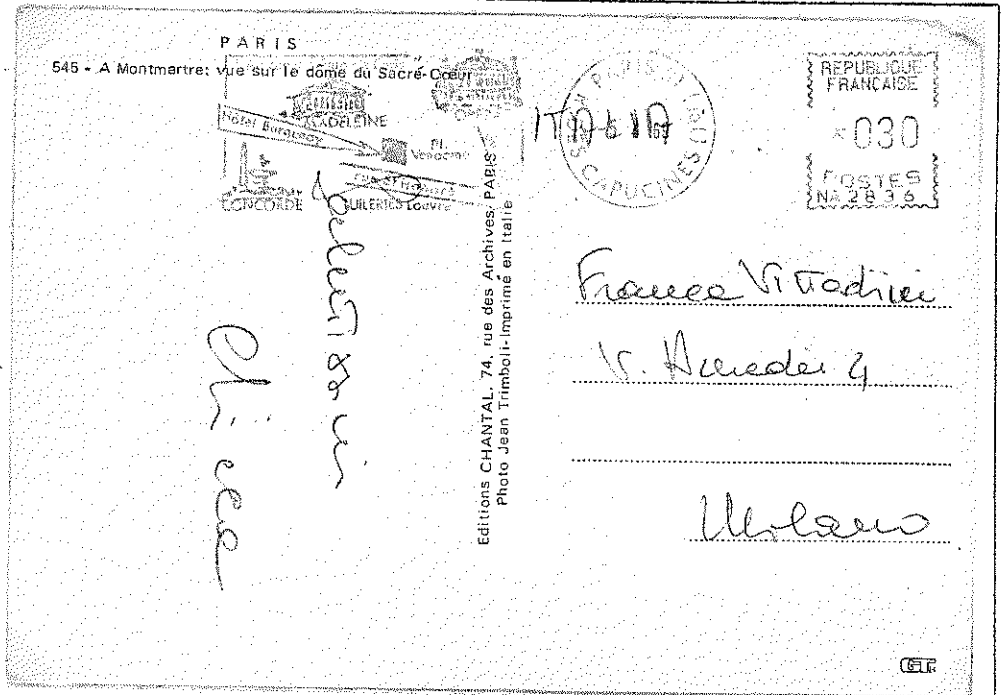 PARIS
545 - A Montmartre: vue sur le dôme du Sacré-Cœur
MADELEINE
Hôtel Burgundy
Pl. Vendôme
rue St Honoré
CONCORDE TUILERIES Louvre
PARIS
R. DES CAPUCINES
REPUBLIQUE
FRANCAISE
030
POSTES
NA 2836
ITALIA
Editions CHANTAL. 74, rue des Archives. PARIS
Photo Jean Trimboli-Imprimé en Italie
Franca Vittadini
V. Amedei 4
Milano
GT